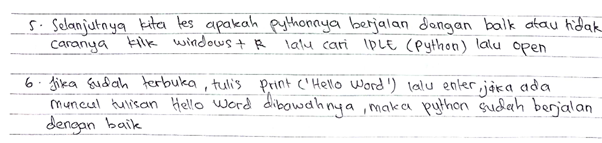 5. Selanjutnya kita tes apakah pythonnya berjalan dengan baik atau tidak
caranya kilk windows + R lalu cari IDLE (Python) lalu open
6. Jika sudah terbuka, tulis print ('Hello Word') lalu enter, jika ada
muncul tulisan Hello Word dibawahnya, maka python sudah berjalan
dengan baik